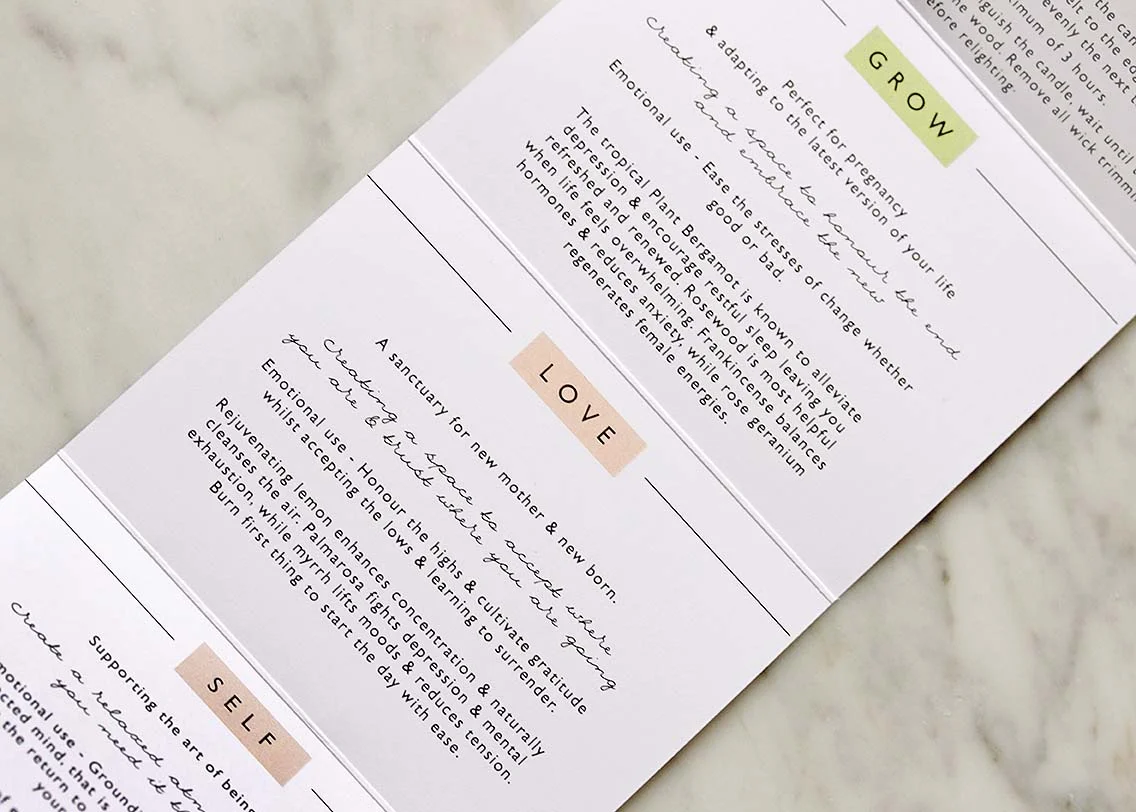 the can
elt to the ed
evenly the next t
imum of 3 hours.
guish the candle, wait until
wood. Remove all wick trimm
efore relighting.
GROW
Perfect for pregnancy
& adapting to the latest version of your life
creating a space to honour the end
and embrace the new
Emotional use - Ease the stresses of change whether
good or bad.
The tropical Plant Bergamot is known to alleviate
depression & encourage restful sleep leaving you
refreshed and renewed. Rosewood is most helpful
when life feels overwhelming. Frankincense balances
hormones & reduces anxiety, while rose geranium
regenerates female energies.
LOVE
A sanctuary for new mother & new born.
creating a space to accept where
you are & trust where you are going
Emotional use - Honour the highs & cultivate gratitude
whilst accepting the lows & learning to surrender.
Rejuvenating lemon enhances concentration & naturally
cleanses the air. Palmarosa fights depression & mental
exhaustion, while myrrh lifts moods & reduces tension.
Burn first thing to start the day with ease.
SELF
Supporting the art of being
create a relaxed
you need it
motional use - Ground
cted mind, that is
the return to
your